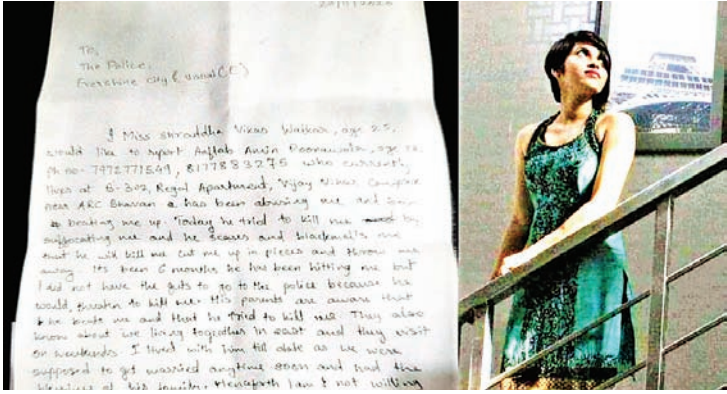 To,
The Police,
I Miss Shraddha Vikas Walkar, age 25,
would like to report Aaftab Amin Poonawala, age
ph no- 8177883275 who currently
lives at B-302, Regal Apartment, Vijay Vihar, Complex
near ARC Bhavan has been abusing me and
beating me up. Today he tried to kill me by
suffocating me and he scares and blackmails me
that he will kill me cut me up in pieces and throw me
away. Its been 6 months he has been hitting me but
I did not have the guts to go to the police because he
would threaten to kill me. His parents are aware that
he beats me and that he tried to kill me. They also
know about we living together in and they visit
on weekends. I lived with him till date as we were
supposed to get married anytime soon and had the
blessings of his family. Henceforth I am not willing